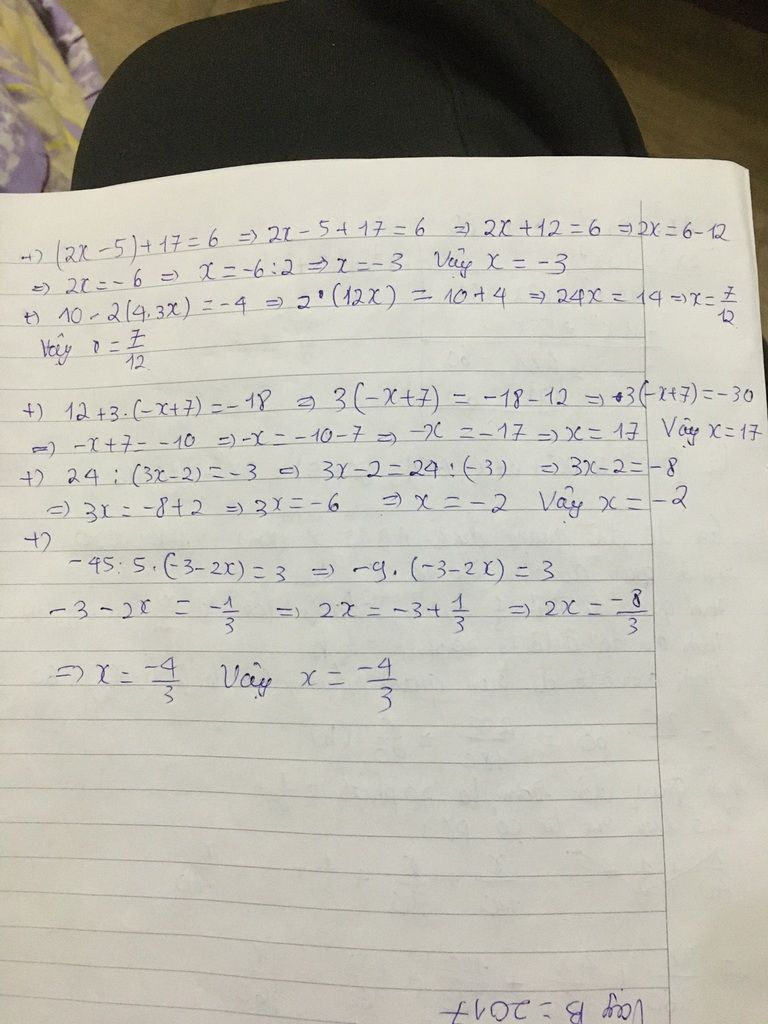 +) (2x - 5) + 17 = 6 => 2x - 5 + 17 = 6 => 2x + 12 = 6 => 2x = 6 - 12
=> 2x = - 6 => x = -6 : 2 => x = -3 Vậy x = -3
+) 10 - 2(4.3x) = -4 => 2 . (12x) = 10 + 4 => 24x = 14 => x = 7/12
Vậy x = 7/12
+) 12 + 3 . (-x + 7) = -18 => 3(-x + 7) = -18 - 12 => 3(-x + 7) = -30
=> -x + 7 = -10 => -x = -10 - 7 => -x = -17 => x = 17 Vậy x = 17
+) 24 : (3x - 2) = -3 => 3x - 2 = 24 : (-3) => 3x - 2 = -8
=> 3x = -8 + 2 => 3x = -6 => x = -2 Vậy x = -2
+)
-45 : 5 . (-3 - 2x) = 3 => -9 . (-3 - 2x) = 3
-3 - 2x = -1/3 => 2x = -3 + 1/3 => 2x = -8/3
=> x = -4/3 Vậy x = -4/3
Vậy B = 2017